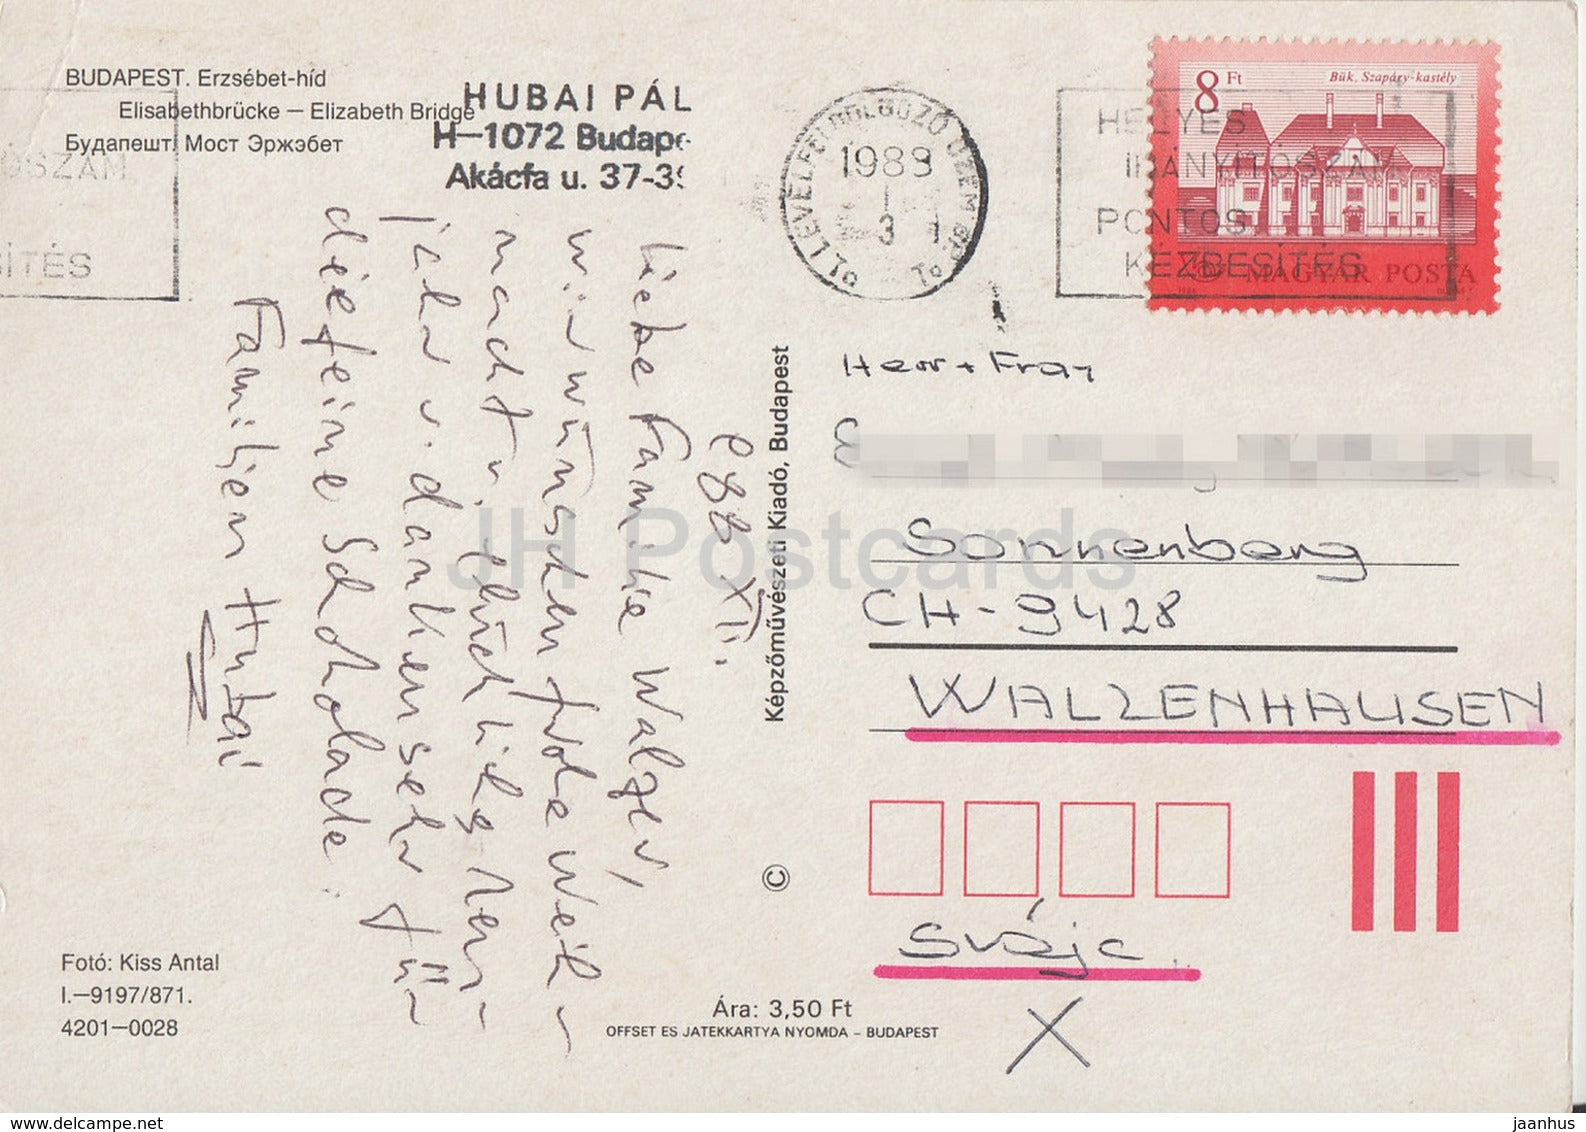 BUDAPEST. Erzsébet-híd
Elisabethbrücke — Elizabeth Bridge
Будапешт. Мост Эржэбет
HUBAI PÁL
H—1072 Budape
Akácfa u. 37-39
ÓSZÁM
SÍTÉS
01 LEVÉLFELDOLGOZÓ ÜZEM BP 01
1989
1
3
HELYES
IRÁNYÍTÓSZÁM
PONTOS
KÉZBESÍTÉS
8 Ft
Bük. Szapáry-kastély
MAGYAR POSTA
988 XII.
Liebe Familie Walzer,
wir wünschen frohe Weih-
nacht u. glückliches neu-
jahr u. danken sehr für
die feine Schokolade.
Familjen Hubai
Képzőművészeti Kiadó, Budapest
©
Herr + Frau
Sonnenberg
CH-9428
WALZENHAUSEN
Svájc
X
Fotó: Kiss Antal
I.—9197/871.
4201—0028
Ára: 3,50 Ft
OFFSET ES JATEKKARTYA NYOMDA – BUDAPEST
JH Postcards
delcampe.net
jaanhus